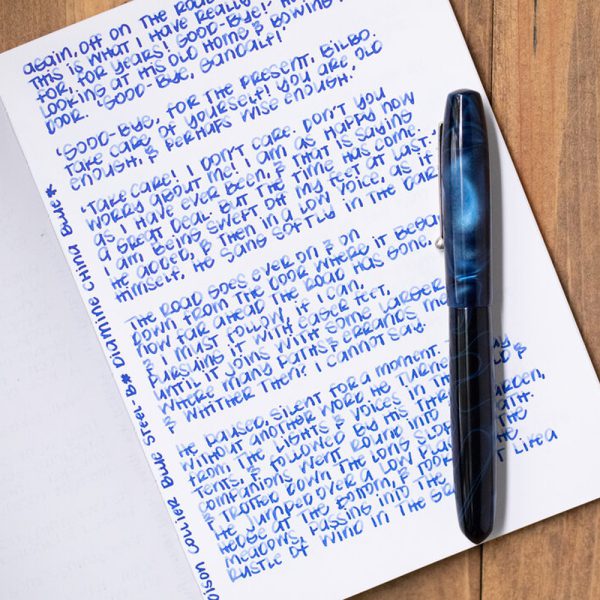 again, off on the Road
This is what I have really
for, for years! Good-bye!'
looking at his old home & bowing
door. 'Good-bye, Gandalf!'
'Good-bye, for the present, Bilbo.
Take care of yourself! You are old
enough, & perhaps wise enough.'
'Take care! I don't care. Don't you
worry about me! I am as happy now
as I have ever been, & that is saying
a great deal. But the time has come.
I am being swept off my feet at last.'
he added, & then in a low voice, as if
himself, he sang softly in the dar
The Road goes ever on & on
Down from the door where it began
Now far ahead the Road has gone,
& I must follow, if I can,
Pursuing it with eager feet,
Until it joins with some larger
Where many paths & errands me
& whither then? I cannot say.
He paused, silent for a moment. T
Without another word he turne
from the lights & voices in th
tents, & followed by his thr arden,
companions went round into
& trotted down the long slop ath.
He jumped over a low pla The
hedge at the bottom, & took he
meadows, passing into the like a
rustle of wind in the gr
oison Couzier Blue Steel B* Diamine China Blue*